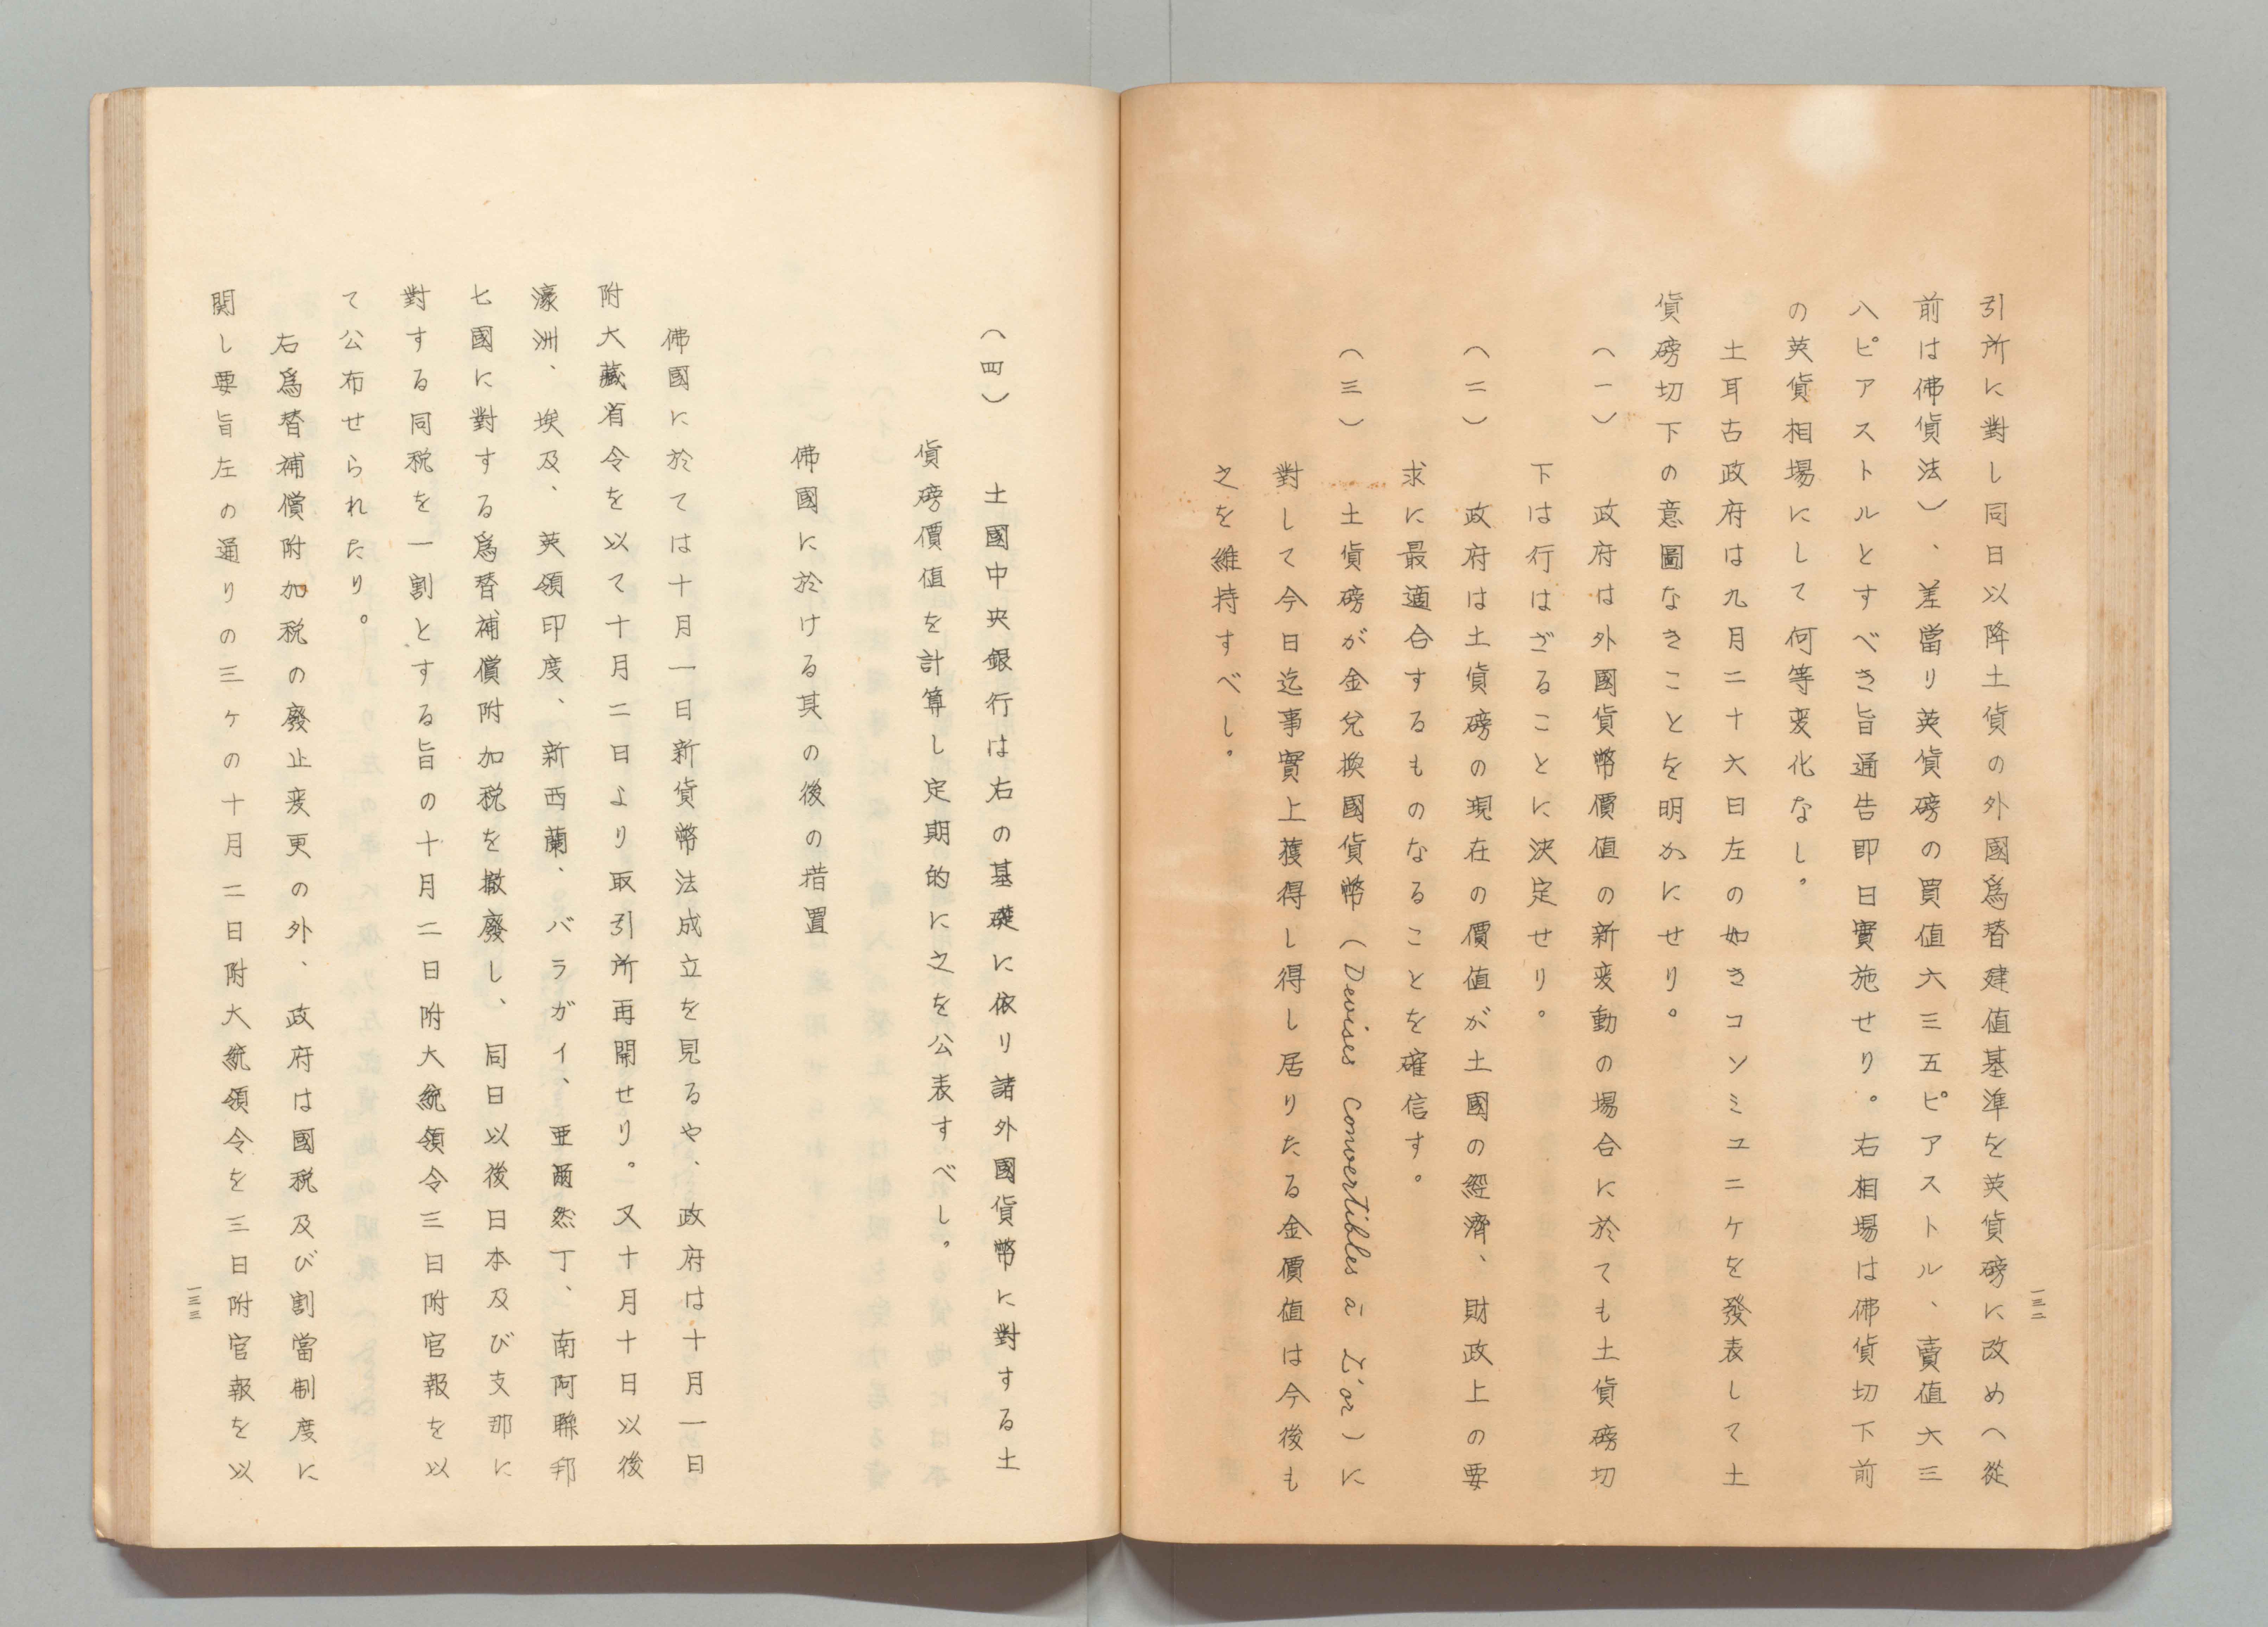 引所に對し同日以降土貨の外國爲替建値基準を英貨磅に改め（從
前は佛貨法）、差當り英貨磅の買値六三五ピアストル、賣値六三
八ピアストルとすべき旨通告即日實施せり。右相場は佛貨切下前
の英貨相場にして何等変化なし。
土耳古政府は九月二十六日左の如きコンミユニケを發表して土
貨磅切下の意圖なきことを明かにせり。
（一）　政府は外國貨幣價値の新変動の場合に於ても土貨磅切
下は行はざることに決定せり。
（二）　政府は土貨磅の現在の價値が土國の經濟、財政上の要
求に最適合するものなることを確信す。
（三）　土貨磅が金兌換國貨幣（Devises convertibles à L'or）に
對して今日迄事實上獲得し得し居りたる金價値は今後も
之を維持すべし。
一三二
（四）　土國中央銀行は右の基礎に依り諸外國貨幣に對する土
貨磅價値を計算し定期的に之を公表すべし。
佛國に於ける其の後の措置
佛國に於ては十月一日新貨幣法成立を見るや、政府は十月一日
附大藏省令を以て十月二日より取引所再開せり。又十月十日以後
濠洲、埃及、英領印度、新西蘭、バラガイ、亜爾然丁、南阿聯邦
七國に對する爲替補償附加税を撤廢し、同日以後日本及び支那に
對する同税を一割とする旨の十月二日附大統領令三日附官報を以
て公布せられたり。
右爲替補償附加税の廢止変更の外、政府は國税及び割當制度に
関し要旨左の通りの三ヶの十月二日附大統領令を三日附官報を以
一三三